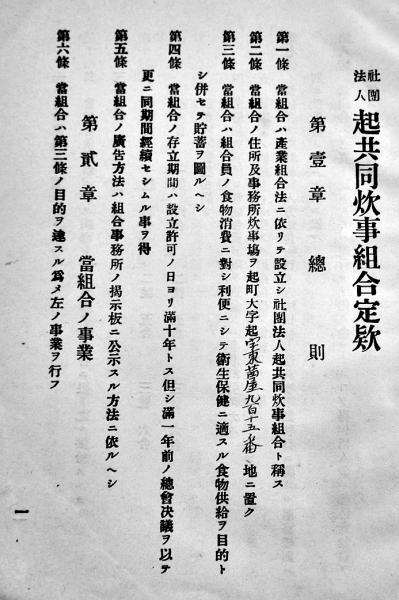 社團法人 起共同炊事組合定欵
第壹章 總則
第一條 當組合ハ產業組合法ニ依リテ設立シ社團法人起共同炊事組合ト稱ス
第二條 當組合ノ住所及事務所炊事場ヲ起町大字起字東茜屋九百十五番地ニ置ク
第三條 當組合ハ組合員ノ食物消費ニ對シ利便ニシテ衛生保健ニ適スル食物供給ヲ目的ト
シ併セテ貯蓄ヲ圖ルヘシ
第四條 當組合ノ存立期間ハ設立許可ノ日ヨリ滿十年トス但シ滿一年前ノ總會決議ヲ以テ
更ニ同期間經續セシムル事ヲ得
第五條 當組合ノ廣告方法ハ組合事務所ノ揭示板ニ公示スル方法ニ依ルヘシ
第貳章 當組合ノ事業
第六條 當組合ハ第三條ノ目的ヲ達スル爲メ左ノ事業ヲ行フ
一